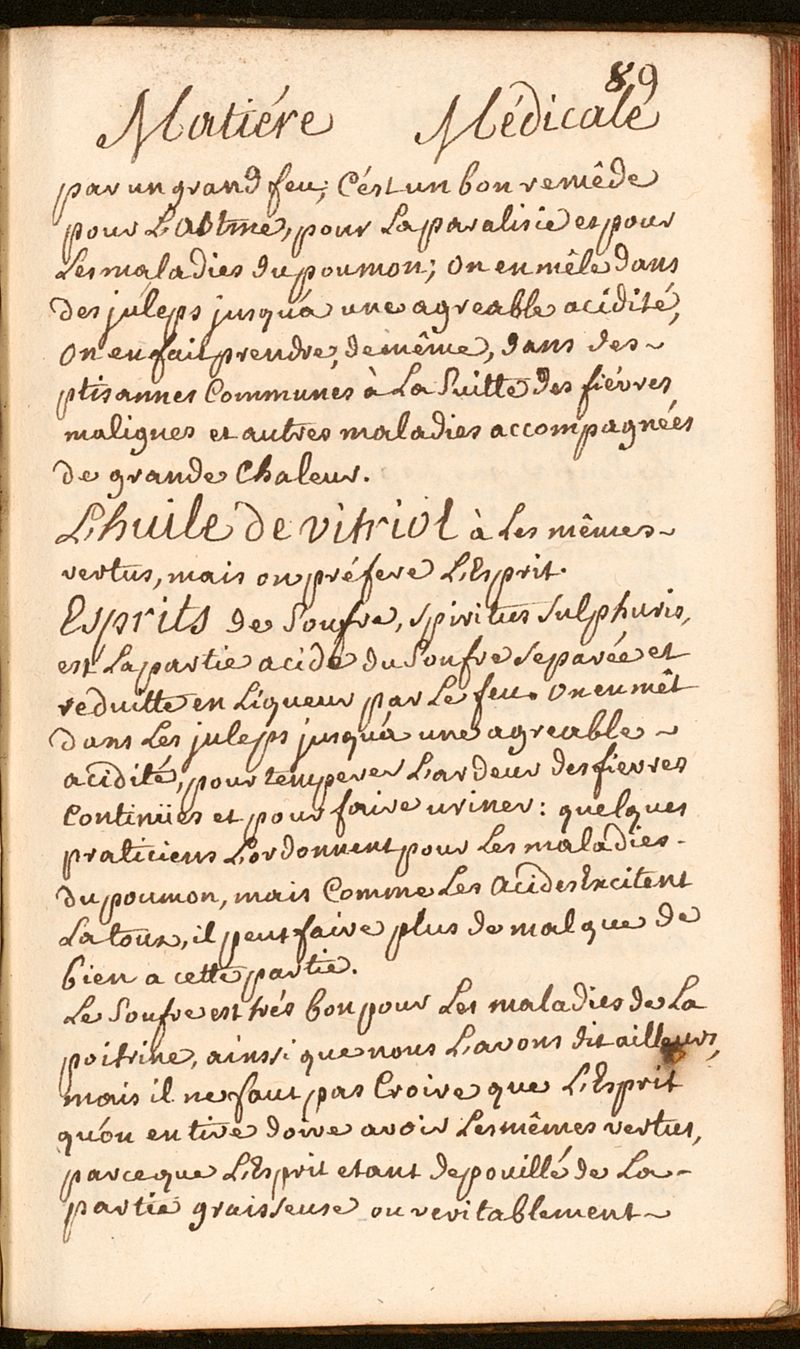 89
Matiére Médicale
par un grand feu; C'ést un bon remêde
pour L'astme, pour La paralisie et pour
Les maladies du poumon; on en mêle dans
des juleps jusqu'á une agreable acidité,
on en fait prendre, de même, dans des~
ptisannes Communes à La Suitte des fiévres
malignes et autres maladies accompagnées
de grande Chaleur.
L'huile de vitriol à Les mêmes~
vertus, mais on préfere L'Esprit.
Esprits de Soufre, spiritus sulphuris,
est La partie acide du Soufre separée et
reduitte en Liqueur par Le feu. on en mêt
dans Les juleps jusqu'á une agreable~
acidité, pour temperer L'ardeur des fievres
Continües et pour faire uriner: quelques
praticiens L'ordonnent pour Les maladies-
du poumon, mais Comme Les acides Excitent
La toux, il peut faire plus de mal que de
bien a cette partie.
Le Soufre est trés bon pour Les maladies de La
poitrine, ainsi que nous L'avons dit ailleurs,
mais il ne faut pas Croire que L'Esprit
qu'on en tire doive avoir Les mêmes vertus,
parceque L'Esprit etant depouillé de La-
partie graisseuse ou veritablement~